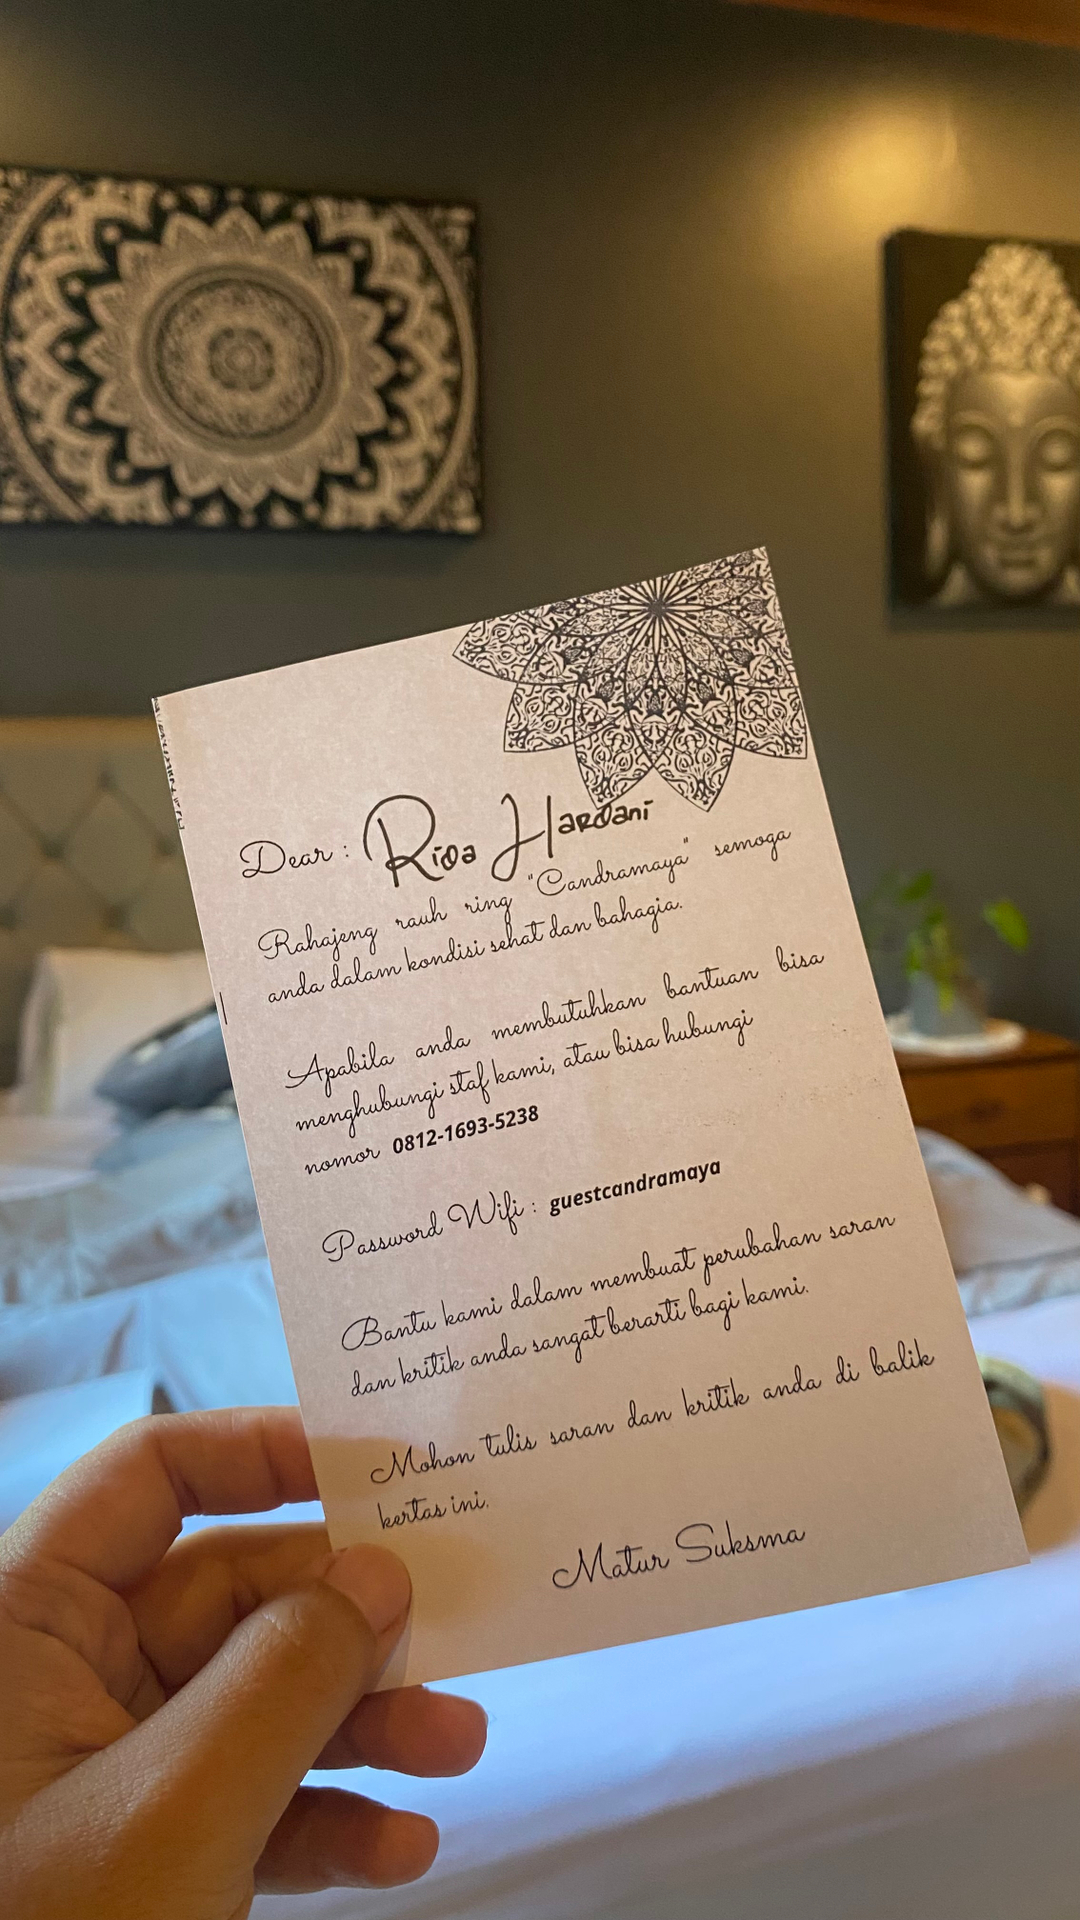 Dear : Rida Hardani
Rahajeng rauh ring "Candramaya" semoga
anda dalam kondisi sehat dan bahagia.
Apabila anda membutuhkan bantuan bisa
menghubungi staf kami, atau bisa hubungi
nomor 0812-1693-5238
Password Wifi : guestcandramaya
Bantu kami dalam membuat perubahan saran
dan kritik anda sangat berarti bagi kami.
Mohon tulis saran dan kritik anda di balik
kertas ini.
Matur Suksma